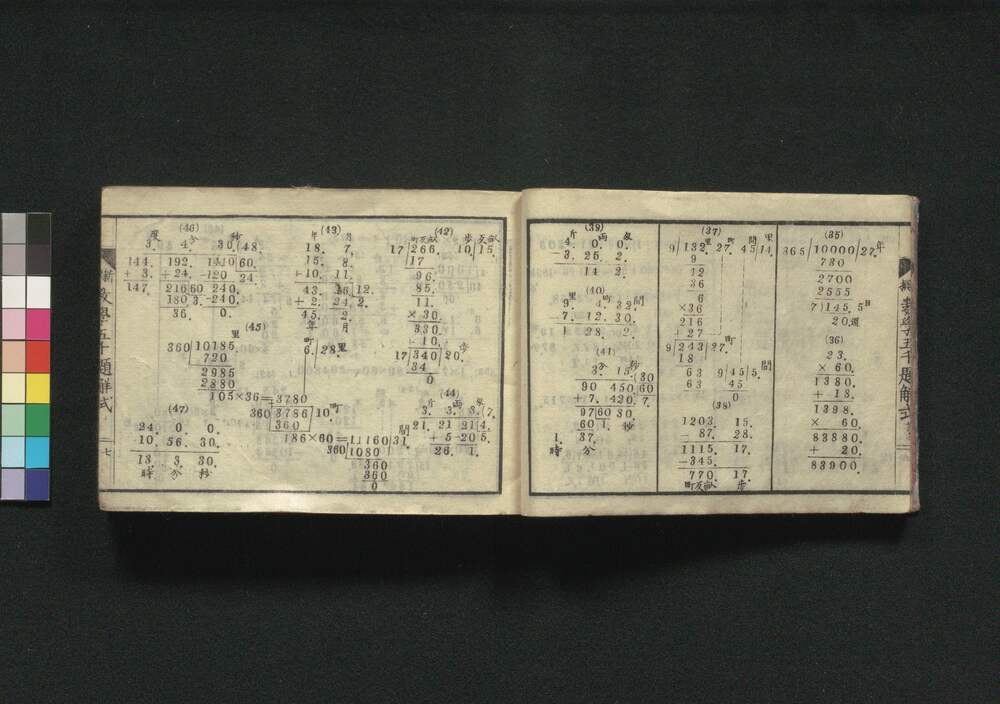 (35)
365)10000(27.年
730
2700
2555
7)145.5日
20.週
(36)
23.
× 60.
1380.
+ 18.
1398.
× 60.
83880.
+ 20.
83900.
(37)
里 町 間 里
9)132. 27. 45(14.
9
42
36
6
×36
216
+ 27
9)243(27.町
18
63 9)45(5.間
63 45
0
(38)
1203. 15.
- 87. 28.
1115. 17.
-345.
770. 17.
町反畝 歩
(39)
斤 両
4. 0. 0.
-3. 25. 2.
14. 2.
(40)
里 町 間
9. 4. 32.
-7. 12. 30.
1. 28. 2.
(41)
分 秒
3. 15.(30
90 450(60
+7. 420.(7.
97(60 30.
60(1. 秒
1. 37.
時 分
(42)
町反畝 歩 反畝
17)266. 10.(15.
17
96.
85.
11.
× 30.
330.
+10.
17)340(20.歩
34
0
(43)
年 月
18. 7.
15. 8.
+10. 11.
43. 26(12.
+2. 24(2.
45. 2.
年 月
(44)
斤 両
3. 3. 3.(7.
21. 21 21(4.
+5 -20(5.
26. 1.
(45)
里 町
360)10185(28.里 6.
720
2985
2880
105×36=3780
+
360)3786(10.町
360
186×60=11160(31.間
360)1080
360
360
0
(46)
度 分 秒
3. 4. 30.(48
144. 192. 1440(60.
+ 3. + 24. -120(24
147. 216(60 240.
180(3. -240.
36. 0.
(47)
24. 0. 0.
10. 56. 30.
13. 3. 30.
時 分 秒
数學五十題解式
七